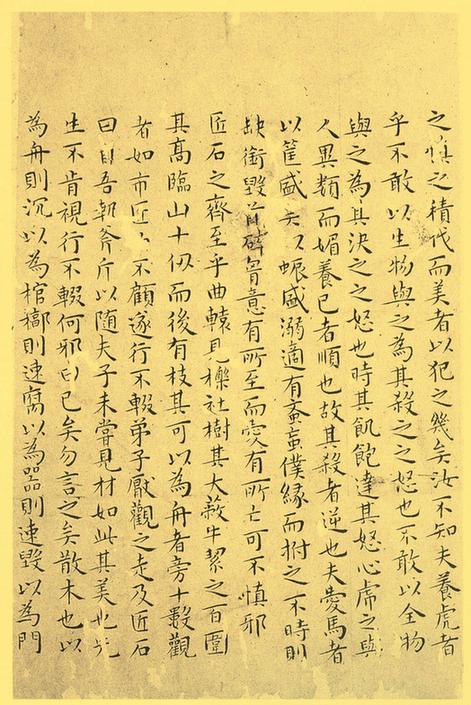 之慎之積伐而美者以犯之幾矣汝不知夫養虎者
乎不敢以生物與之為其殺之之怒也不敢以全物
與之為其决之之怒也時其飢飽達其怒心虎之與
人異類而媚養已者順也故其殺者逆也夫愛馬者
以筐盛矢以蜄盛溺適有蚉䖟僕緣而拊之不時則
缺銜毀首碎胷意有所至而愛有所亡可不慎邪
匠石之齊至乎曲轅見櫟社樹其大蔽牛絜之百圍
其高臨山十仞而後有枝其可以為舟者旁十數觀
者如市匠石不顧遂行不輟弟子厭觀之走及匠石
曰自吾執斧斤以随夫子未甞見材如此其美也先
生不肯視行不輟何邪曰已矣勿言之矣散木也以
為舟則沉以為棺槨則速腐以為器則速毀以為門